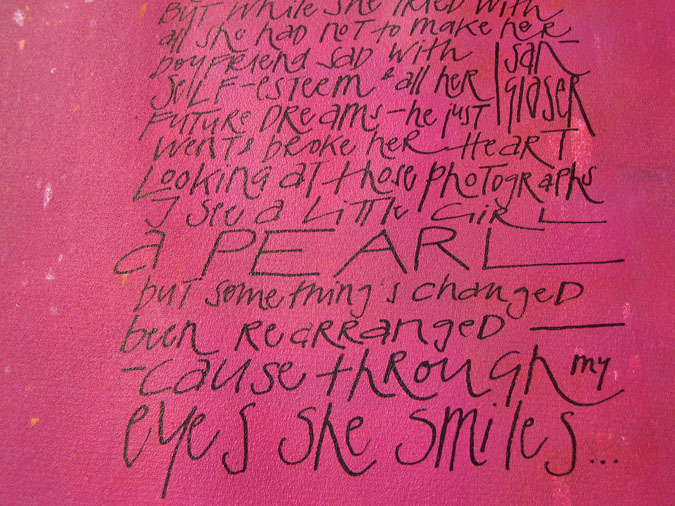 But while she tried with
all she had not to make her
boyfriend sad with
self-esteem & all her
future dreams - he just
went & broke her heart
Looking at those photographs
I see a little girl
a PEARL
but something's changed
been rearranged
-cause through my
eyes she smiles...
san
glaser